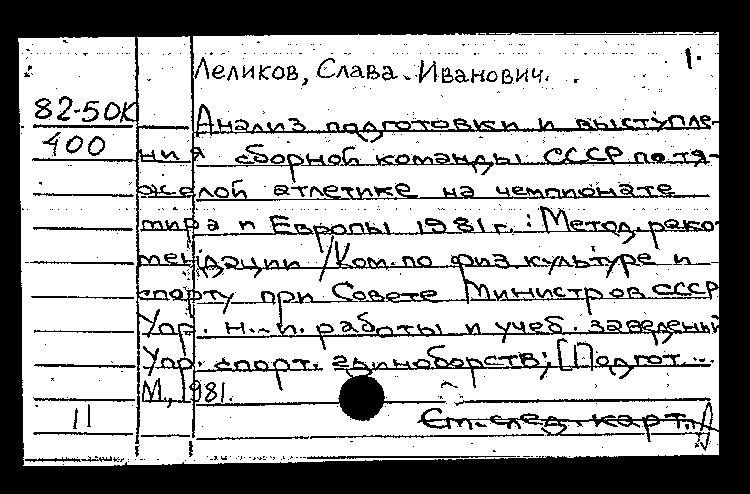 1.
Леликов, Слава Иванович.
82-50К
400
Анализ подготовки и выступле-
ния сборной команды СССР по тя-
желой атлетике на чемпионате
мира и Европы 1981 г.: Метод. реко-
мендации / Ком. по физ. культуре и
спорту при Совете Министров СССР
Упр. н.-и. работы и учеб. заведений
Упр. спорт. единоборств; [Подгот...
М., 1981.
11
См. след. карт.